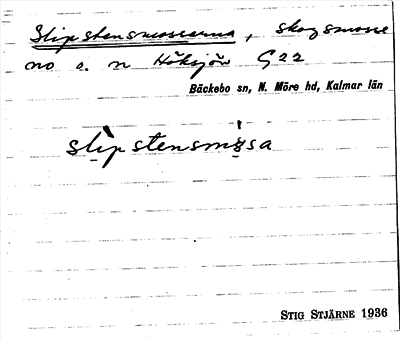 Slipstensmossarna, skogsmosse
no o. n Höksjön G22
Bäckebo sn, N. Möre hd, Kalmar län
slipstensmosa
STIG STJÄRNE 1936